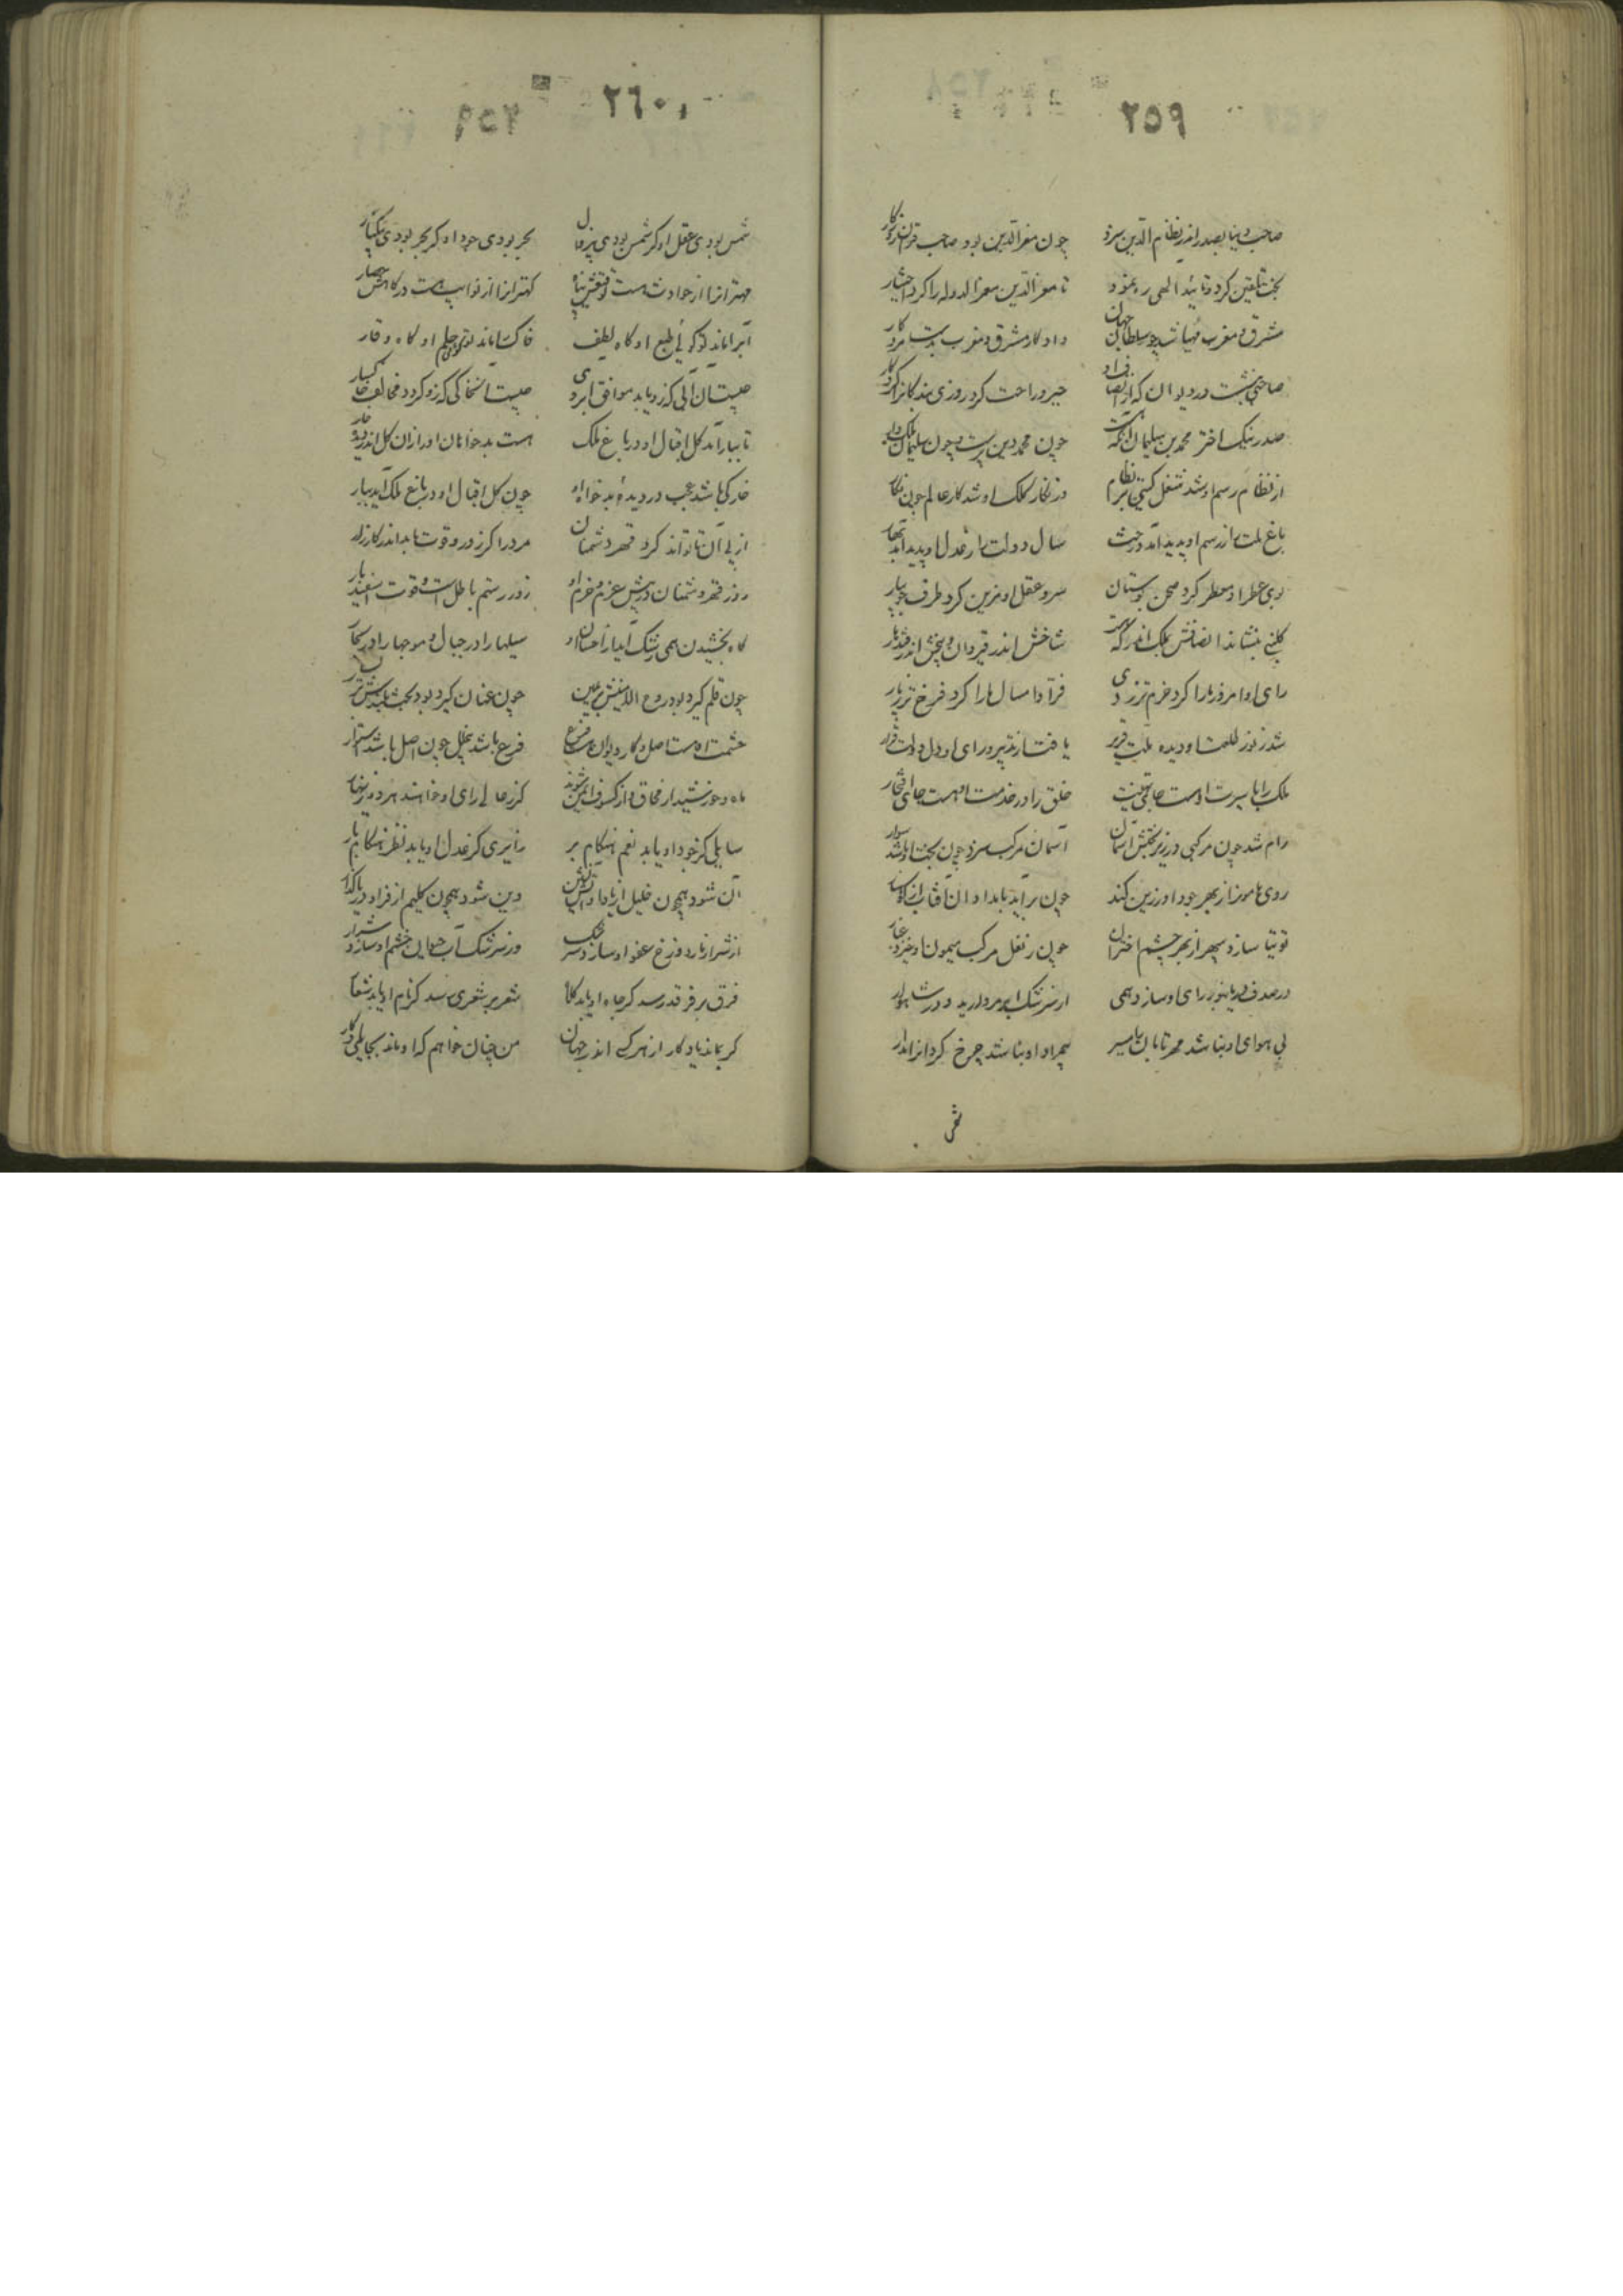 ٢٥٩
صاحب دنیا بصدر اندر نظام الدین سزد
چون معز الدین بود صاحب قران روزکار
بخت تلقین کرد و تایید الهی ره نمود
تا معز الدین معز الدوله را کرد اختیار
مشرق و مغرب چو سلطان جهان
داد کار مشرق و مغرب بدست مرد کار
صاحبی بنشست در دیوان که از انصاف او
خیر و راحت کرد روزی بندکانرا کردکار
صدر نیک اختر محمد بن سلیمان آنکه هست
چون محمد دین پرست و چون سلیمان ملک دار
از نظام رسم او شد شغل کیتی با نظام
وز نکار کلک او شد کار عالم چون نکار
باغ ملت را ز رسم او پدید آمد درخت
سال دولت را ز عدل او پدید آمد بهار
بوی عطر او معطر کرد صحن بوستان
سرو عقل او مزین کرد طرف جویبار
کلبنی بنشاند انصافش بملک اندر که هست
شاخش اندر قیروان و بیخش اندر قندهار
رای او امروز ما را کرد خرم تر ز دی
فر او امسال ما را کرد فرخ تر ز پار
شد ز نور طلعت او دیده ملت قریر
یافت از تدبیر و رای او دل دولت قرار
ملک را با سیرت او هست جای تهنیت
خلق را در خدمت او هست جای افتخار
رام شد چون مرکبی در زیر بختش آسمان
آسمان مرکب سزد چون بخت او باشد سوار
روی هامون از بهر جود او زرین کند
چون بر آید بامدادان آفتاب از کوهسار
توتیا سازد سپهر از بهر چشم اختران
چون ز نعل مرکب میمون او خیزد غبار
در صدف دریا بنور رای او سازد همی
از سرشک ابر مروارید و در شاهوار
بی هوای او نباشد مهر تابان را مسیر
بی مراد او نباشد چرخ کردانرا مدار
شمس
٢٦٠
شمس بودی عقل او کر شمس بودی بی زوال
بحر بودی جود او کر بحر بودی بی کنار
مهترانرا از حوادث هست توقیعش پناه
کهترانرا از نوایب هست درکاهش حصار
آبرا ماند تو کویی طبع او کاه لطف
خاک را ماند تو کویی حلم او کاه وقار
چیست آن آبی که زو یابد موافق ابروی
چیست آن خاکی که زو کردد مخالف خاکسار
تا ببار آمد کل اقبال او در باغ ملک
هست بدخواهان او را زان کل اندر دیده خار
خار کی باشد عجب در دیده بدخواه او
چون کل اقبال او در باغ ملک آید ببار
از پی آن تا تواند کرد قهر دشمنان
مرد را کر زور و قوت باید اندر کارزار
روز قهر دشمنان در پیش عزم و حزم او
زور رستم باطل است و قوت اسفندیار
کاه بخشیدن همی رشک آید از احسان او
سیلها را در جبال و موجها را در بحار
چون قلم کیرد بود روح الامینش بر یمین
چون عنان کیرد بود بخت بلندش بر یسار
حشمت او هست اصل و کار دیوان هست فرع
فرع باشد بی خلل چون اصل باشد استوار
ماه و خورشید از محاق و از کسوف ایمن شوند
کر ز عالی رای او خواهند هر دو زینهار
سایلی کر جود او یابد نعم هنکام بر
زایری کز عدل او یابد نظر هنکام بار
آن شود همچون خلیل از یاد او آتش نشین
وین شود همچون کلیم از فر او دریا کذار
از شرار نار دوزخ عفو او سازد سرشک
وز سرشک آب حیوان خشم او سازد شرار
فرق بر فرقد رسد کر جاه او یابد کلاه
شعر بر شعری رسد کز نام او یابد شعار
کر بماند یادکار از هر کسی اندر جهان
من چنان خواهم که او ماند بجای یادکار